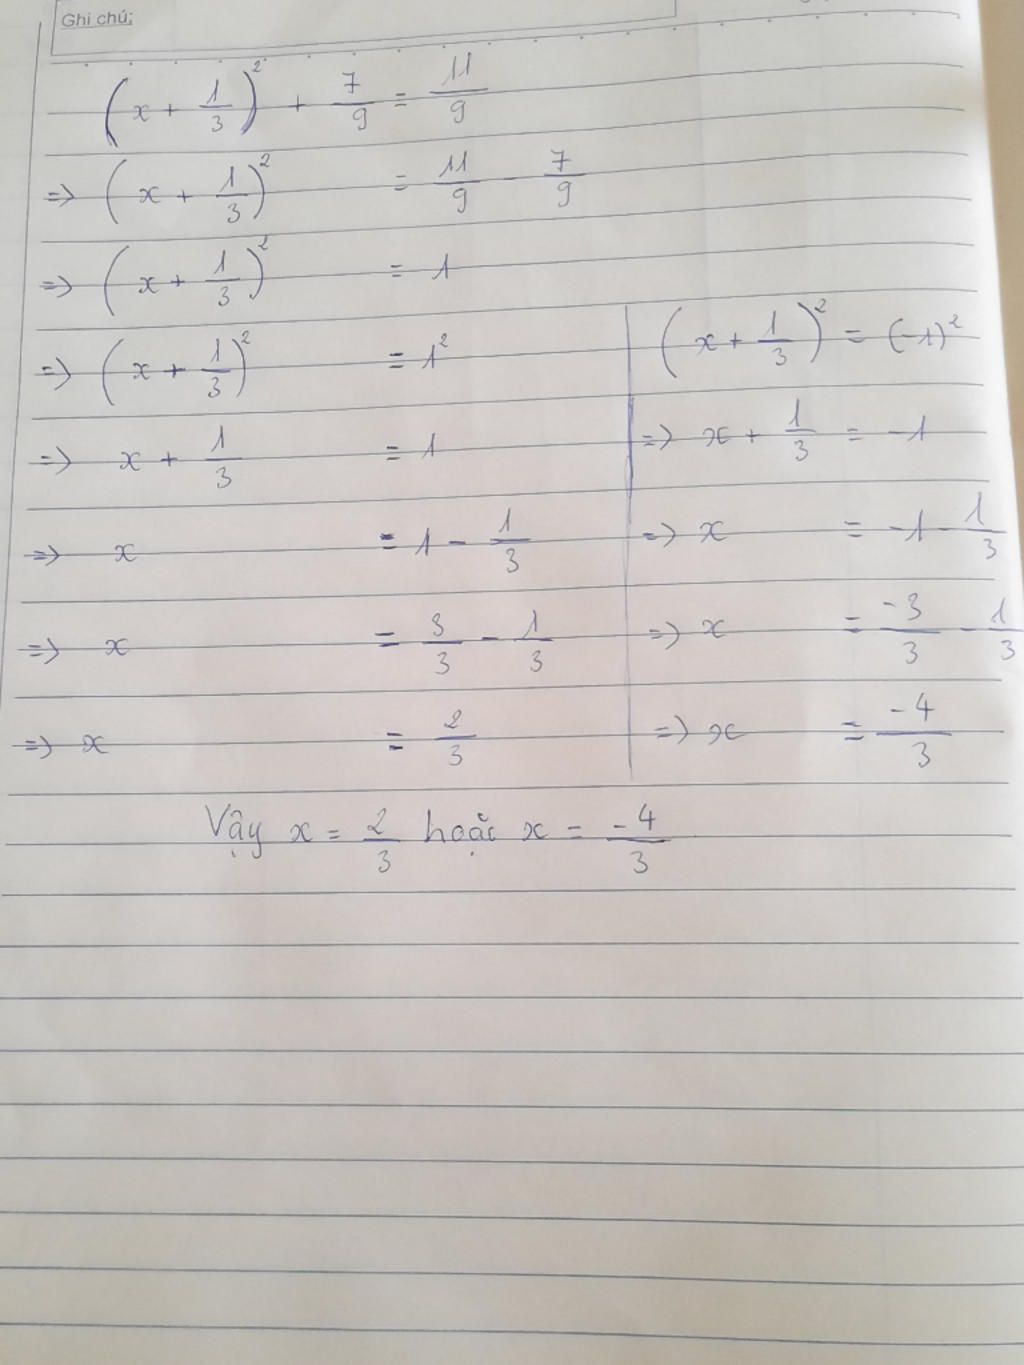 Ghi chú:
(x + 1/3)² + 7/9 = 11/9
=> (x + 1/3)² = 11/9 - 7/9
=> (x + 1/3)² = 1
=> (x + 1/3)² = 1²
=> x + 1/3 = 1
=> x = 1 - 1/3
=> x = 3/3 - 1/3
=> x = 2/3
(x + 1/3)² = (-1)²
=> x + 1/3 = -1
=> x = -1 - 1/3
=> x = -3/3 - 1/3
=> x = -4/3
Vậy x = 2/3 hoặc x = -4/3